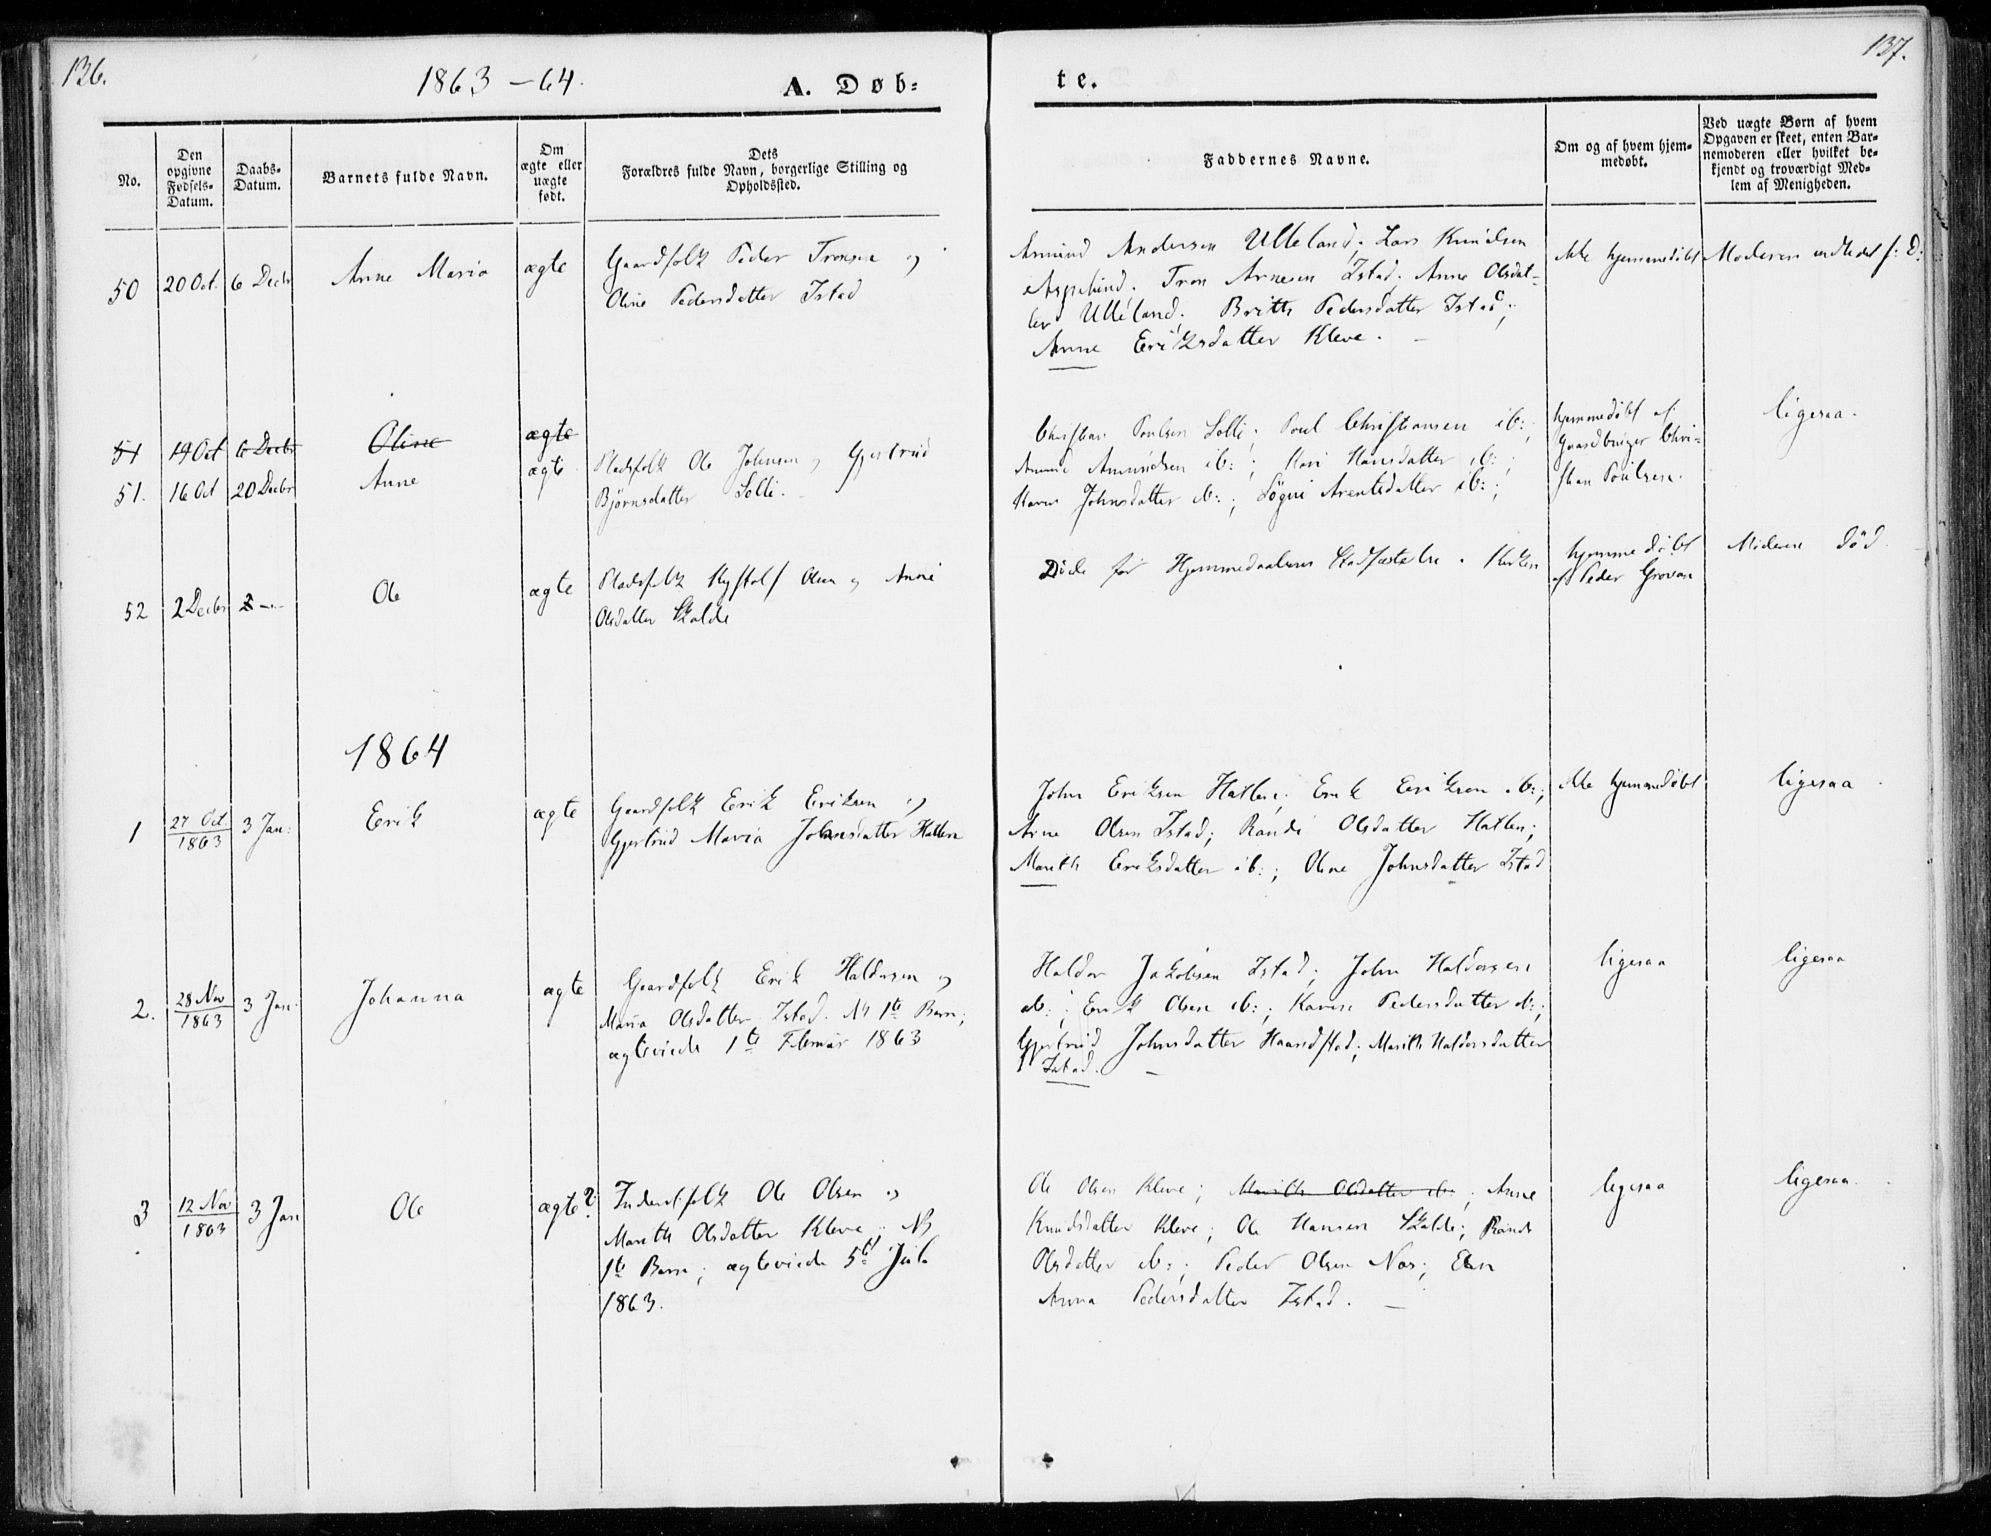 136.
1863 – 64.
A. Døb=
te.
137.
No.
Den opgivne Fødsels-Datum.
Daabs-Datum.
Barnets fulde Navn.
Om ægte eller uægte født.
Dets
Forældres fulde Navn, borgerlige Stilling og
Opholdssted.
Faddernes Navne.
Om og af hvem hjem-
medøbt.
Ved uægte Børn af hvem
Opgaven er skeet, enten Bar-
nemoderen eller hvilket be-
kjendt og troværdigt Med-
lem af Menigheden.
50 20 Oct. 6 Decbr Anne Maria ægte
Gaardfolk Peder Tronsen og
Oline Pedersdatter Istad
Amund Andersen Ulleland; Lars Knudsen
Aspehind. Tron Arnesen Istad; Anne Olsdat-
ter Ulleland. Brith Pedersdatter Istad;
Anne Eriksdatter Kleve. –
Ikke hjemmedøbt
Moderen
51 14 Oct 6 Decbr Oline ægte
51. 16 Oct 20 Decbr Anne ægte
Pladsfolk Ole Johnsen og Gjertrud
Björnsdatter Solli. –
Christian Poulsen Solli; Poul Christiansen ib:;
Amund Amundsen ib:; Kari Hansdatter ib:;
Karen Johnsdatter ib:; Sögni Arentsdatter ib:;
hjemmedöbt af
Gaardbruger Chri-
stian Poulsen.
ligesaa.
52 2 Decbr 2 – Ole ægte
Pladsfolk Olsen og Anne
Olsdatter Skalde
Döde för Hjemmedaabens Stadfæstelse i Kirken
hjemmedöbt
af Peder Grovan
Moderen död.
1864
1 27 Oct 1863 3 Jan: Erik ægte
Gaardfolk Erik Eriksen og
Gjertrud Maria Johnsdatter Hatlen
John Eriksen Hatlen; Erik Eriksen ib:;
Arne Olsen Istad; Randi Olsdatter Hatlen;
Marith Eriksdatter ib:; Oline Johnsdatter Istad
Ikke hjemmedöbt
ligesaa
2. 28 Nov 1863 3 Jan: Johanna ægte
Gaardfolk Erik Haldorsen og
Maria Olsdatter Istad. NB 1te Barn;
ægteviede 1te Februar 1863
Haldor Jakobsen Istad; John Haldorsen
ib:; Erik Olsen ib:; Karen Pedersdatter ib:;
Gjertrud Johnsdatter Haandstad; Marith Haldorsdatter
Istad. –
ligesaa
ligesaa
3 12 Nov 1863 3 Jan Ole ægte?
Inderstfolk Ole Olsen og
Marith Olsdatter Kleve; NB
1te Barn; ægteviede 5te Juli
1863.
Ole Olsen Kleve; Marith Olsdatter ib:; Anne
Knudsdatter Kleve; Ole Hansen Skalde; Randi
Olsdatter ib:; Peder Olsen Nos; Elen
Anna Pedersdatter Istad. –
ligesaa
ligesaa.